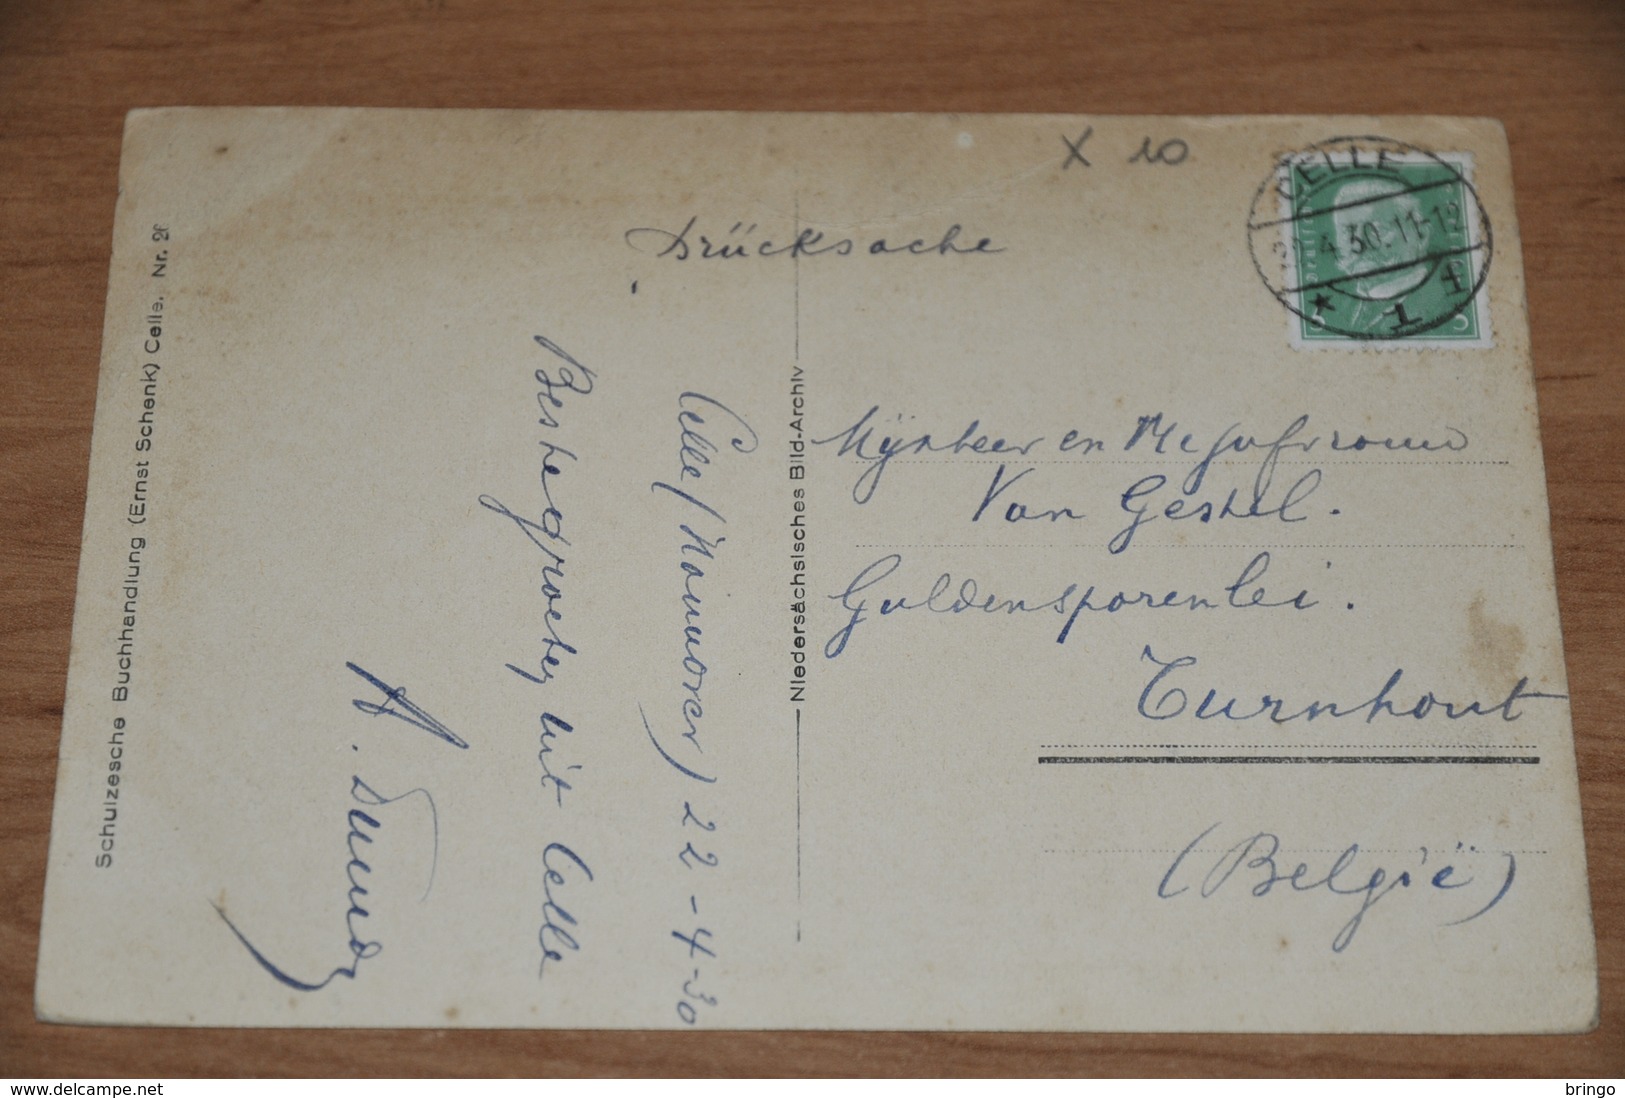 X 10
CELLE
4.30.11-12
* 1 1
5 5
Drücksache
Celle (Hannover) 22-4-30
Beste groeten uit Celle
Mijnheer en Mejufvrouw
Van Gestel.
Guldensporenlei.
Turnhout
(België)
Niedersächsisches Bild-Archiv
Schulzesche Buchhandlung (Ernst Schenk) Celle. Nr. 2
delcampe.net
bringo